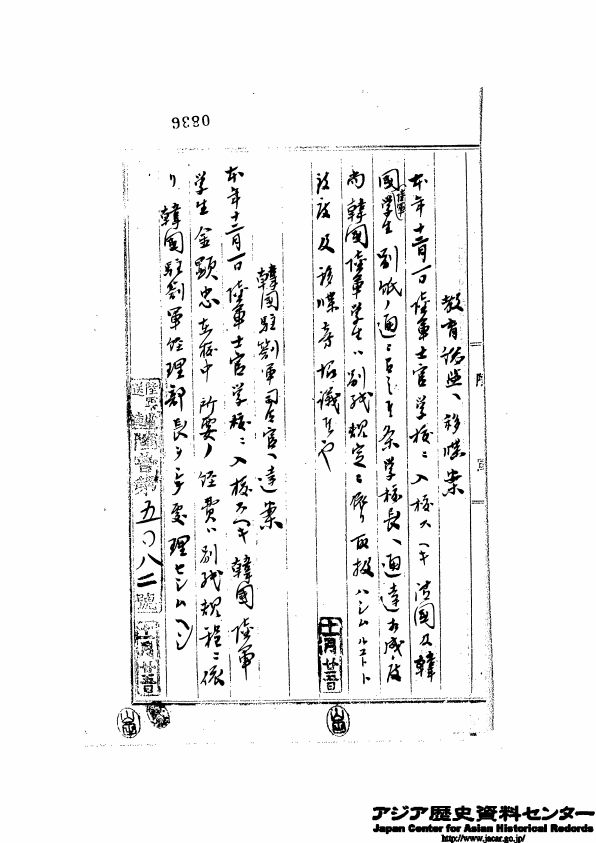 0836
教育総監ヘ移牒案
本年十二月一日陸軍士官学校ニ入校スヘキ清国及韓
国陸軍学生別紙ノ通ニ有之候条学校長ヘ通達相成度
尚韓国陸軍学生ハ別紙規定ニ依リ取扱ハシムルコトト
致度及移牒
韓国駐劄軍司令官ヘ達案
本年十二月一日陸軍士官学校ニ入校スヘキ韓国陸軍
学生金顕忠在校中所要ノ経費ハ別紙規程ニ依
リ韓国駐劄軍経理部長ヲシテ処理セシムヘシ
五〇八二號
十一月廿
十一月廿
アジア歴史資料センター
Japan Center for Asian Historical Records
http://www.jacar.go.jp/